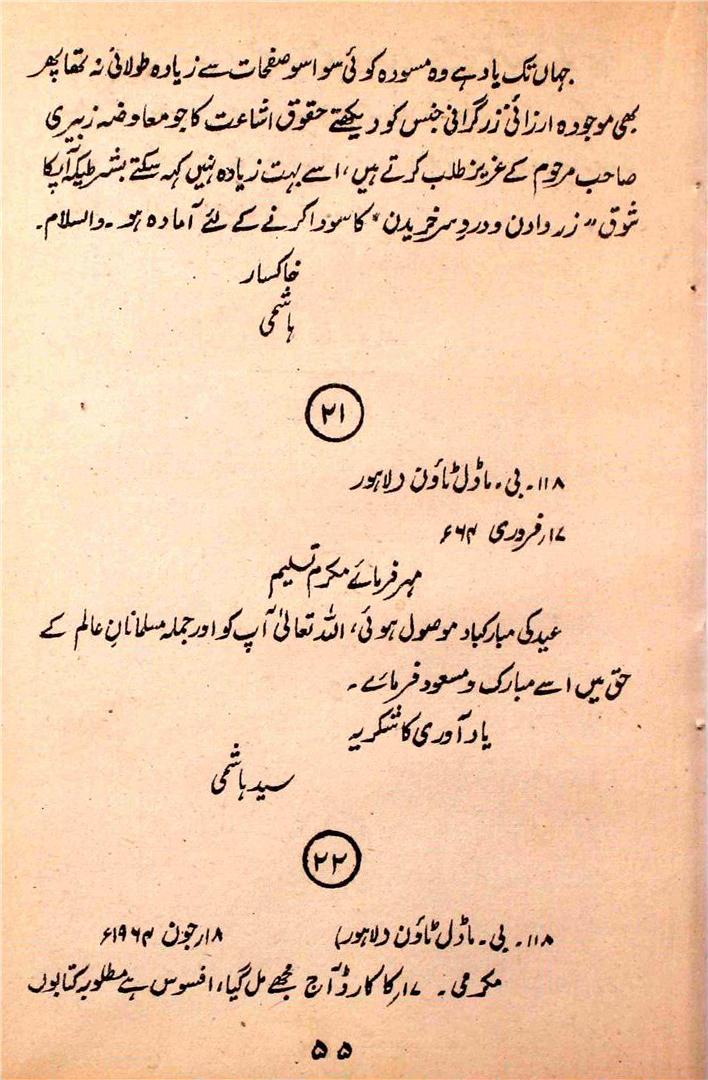 جہاں تک یاد ہے وہ مسودہ کوئی سوا سو صفحات سے زیادہ طولانی نہ تھا پھر
بھی موجودہ ارزانیٔ زر گرانی جنس کو دیکھتے حقوق اشاعت کا جو معاوضہ زبیری
صاحب مرحوم کے عزیز طلب کرتے ہیں، اسے بہت زیادہ نہیں کہہ سکتے بشرطیکہ آپ کا
شوق "زر دادن و دردِ سر خریدن" کا سودا کرنے کے لئے آمادہ ہو۔ والسلام۔
خاکسار
ہاشمی
۲۱
۱۱۸۔ بی۔ ماڈل ٹاؤن (لاہور
۱۷؍ فروری ۶۶۴
مہر فرمائے مکرم تسلیم
عید کی مبارکباد موصول ہوئی، اللہ تعالیٰ آپ کو اور جملہ مسلمانانِ عالم کے
حق میں اسے مبارک و مسعود فرمائے۔
یاد آوری کا شکریہ
سید ہاشمی
۲۲
۱۱۸۔ بی۔ ماڈل ٹاؤن (لاہور) ۱۸؍ جون ۱۹۶۴ء
مکرمی۔ ۱۷؍ کا کارڈ آج مجھے مل گیا، افسوس ہے مطلوبہ کتابوں
۵۵